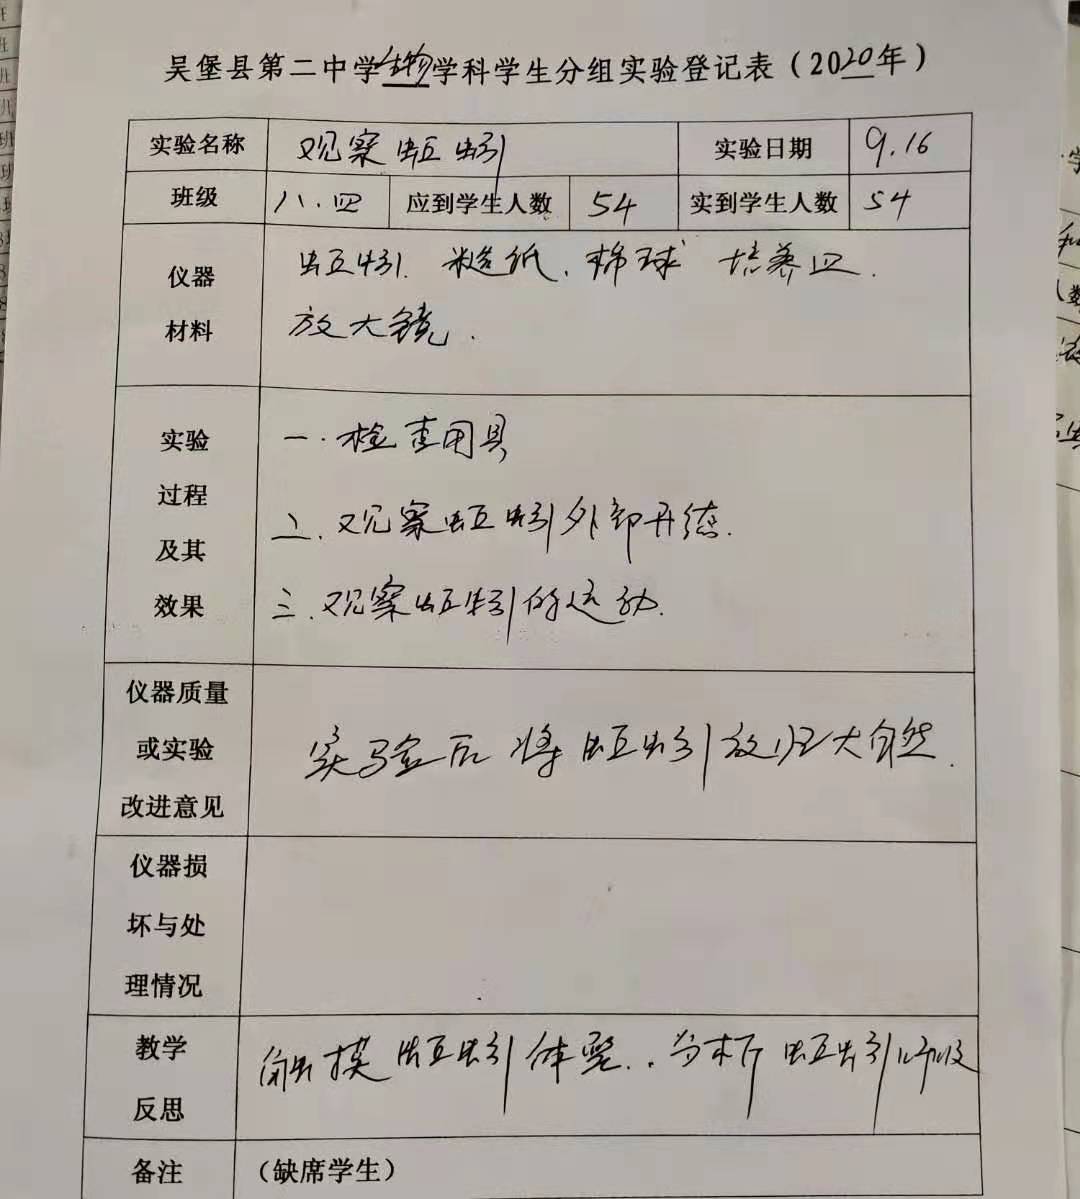 吴堡县第二中学生物学科学生分组实验登记表（2020年）
实验名称 观察蚯蚓 实验日期 9.16
班级 八.四 应到学生人数 54 实到学生人数 54
仪器
材料
蚯蚓. 糙纸. 棉球 培养皿.
放大镜.
实验
过程
及其
效果
一.检查用具
二.观察蚯蚓外部形态.
三.观察蚯蚓的运动.
仪器质量
或实验
改进意见
实验后将蚯蚓放归大自然.
仪器损
坏与处
理情况
教学
反思
触摸蚯蚓体壁..分析蚯蚓呼吸
备注 （缺席学生）